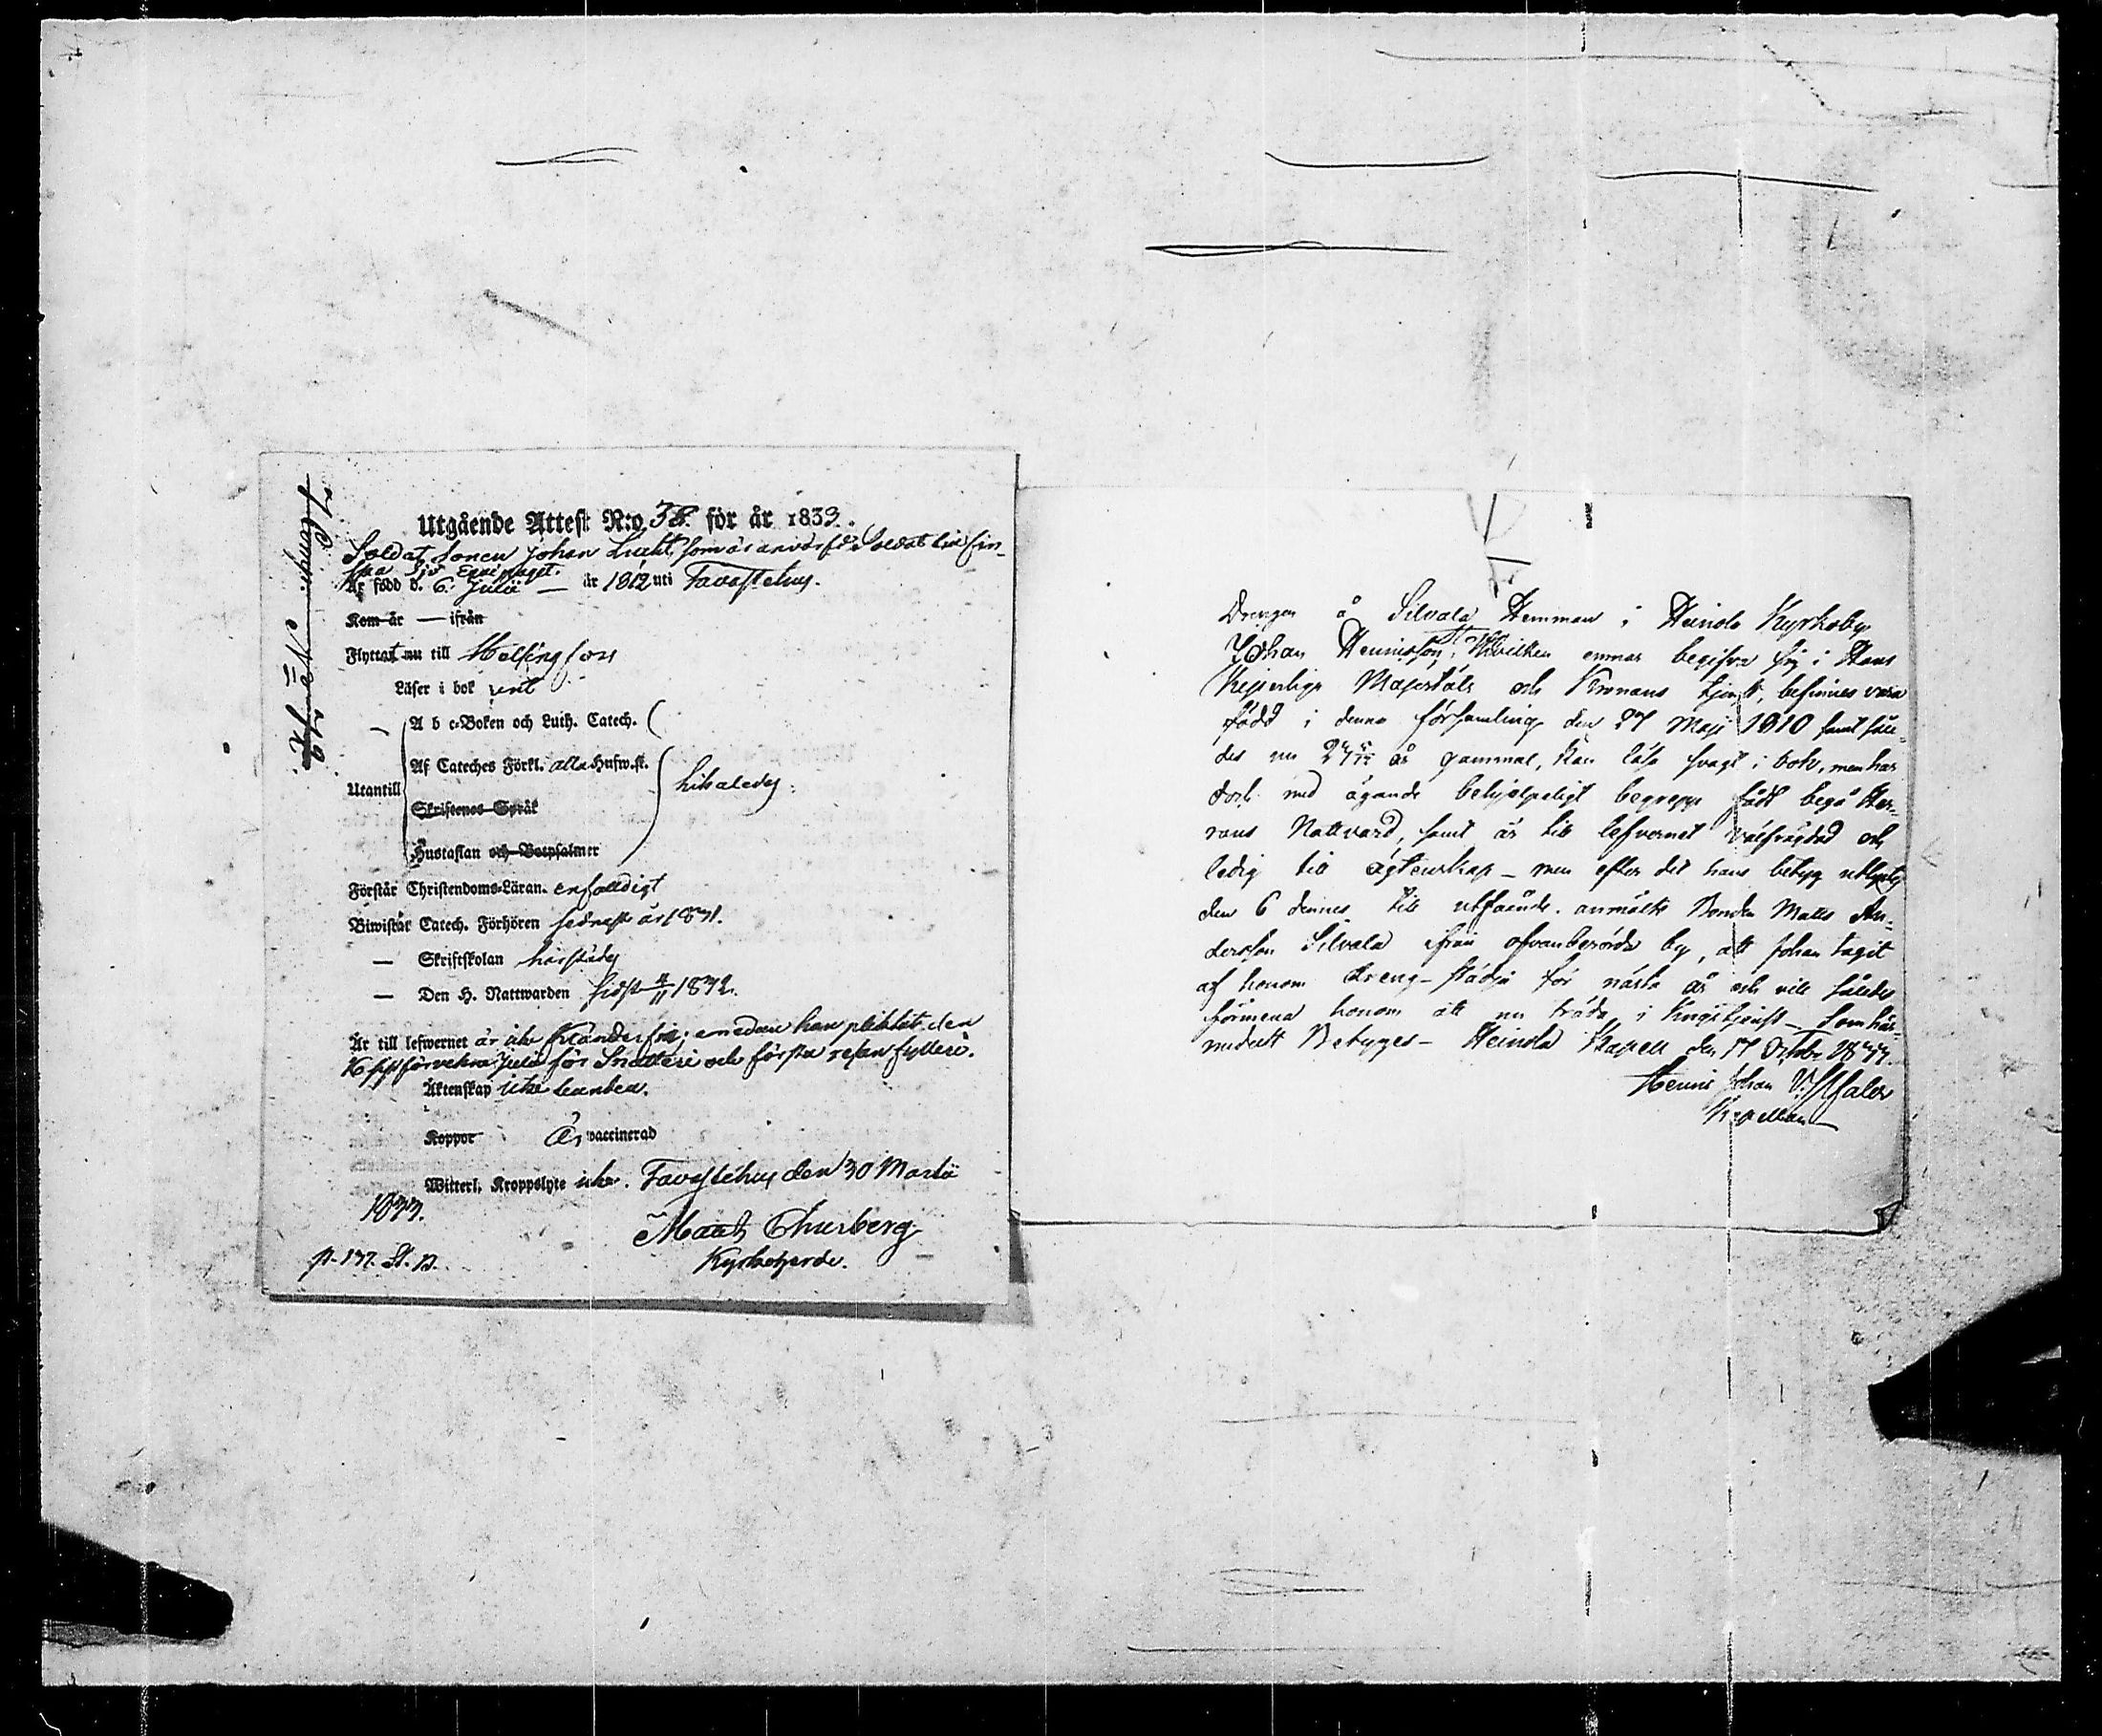 Utgående Attest N:o 38. för år 1833.
Soldat sonen Johan Lucht, som är anvärfd Soldat vid Fin-
ska Sjö Equipaget.
Är född d. 6 Julii — år 1812 uti Tavastehus.
Kom år — ifrån
Flyttat nu till Helsingfors
Läser i bok rent
Utantill
A b c-Boken och Luth. Catech.
Af Cateches Förkl. alla Hufw.st.
Skriftenes Språk
Hustaflan och Botpsalmer
likaledes
Förstår Christendoms-Läran. enfalldigt
Biwistat Catech. Förhören sednast år 1831.
— Skriftskolan härstädes
— Den H. Nattwarden sidst 4/11 1832.
Är till lefwernet är icke klanderfri; emedan han pliktat den
16 sistförvekna Julii för Snatteri och första resan fylleri.
Äktenskap icke bunden.
Koppor Är vaccinerad
Witterl. Kroppslyte icke. Tavastehus den 30 Martii
1833.
Matts Churberg
Kyrkoherde.
p. 137. St. B.
Drengen å Silvala Hemman i Heinola Kyrkoby
Johan Henricsson, Hvilken ernar begifva sig i Hans
Kejserliga Majestäts och Kronans tjenst, befinnes vara
född i denna församling den 27 Maji 1810 samt såle-
des nu 23 5/12 år gammal, kan läsa svagt i bok, men har
dock med ägande behjelpeligt begrepp fådt begå Her-
rans Nattvard, samt är till lefvernet välfrägdad och
ledig till ägtenskap — men efter det hans betyg utlystes
den 6 dennes till utfående. anmälte Bonden Matts An-
dersson Silvala ifrån ofvanberörde by, att Johan tagit
af honom dreng-städja för nästa år och vill således
förmena honom att nu träda i Krigstjenst — Som här-
medelst Betyges — Heinola Kapell den 17 October 1833.
Henric Johan
Kapellan